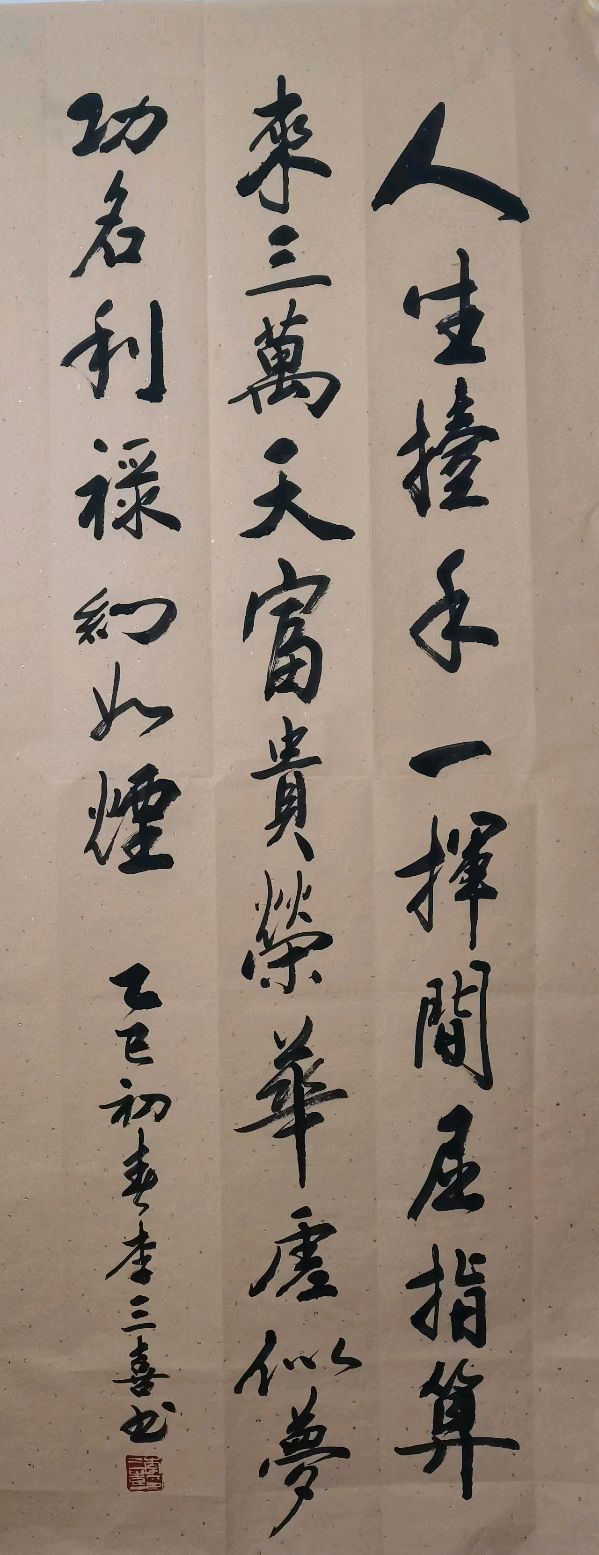 人生擡手一揮間屈指算
來三萬天富貴榮華虛似夢
功名利祿幻如煙
乙巳初春李三喜书